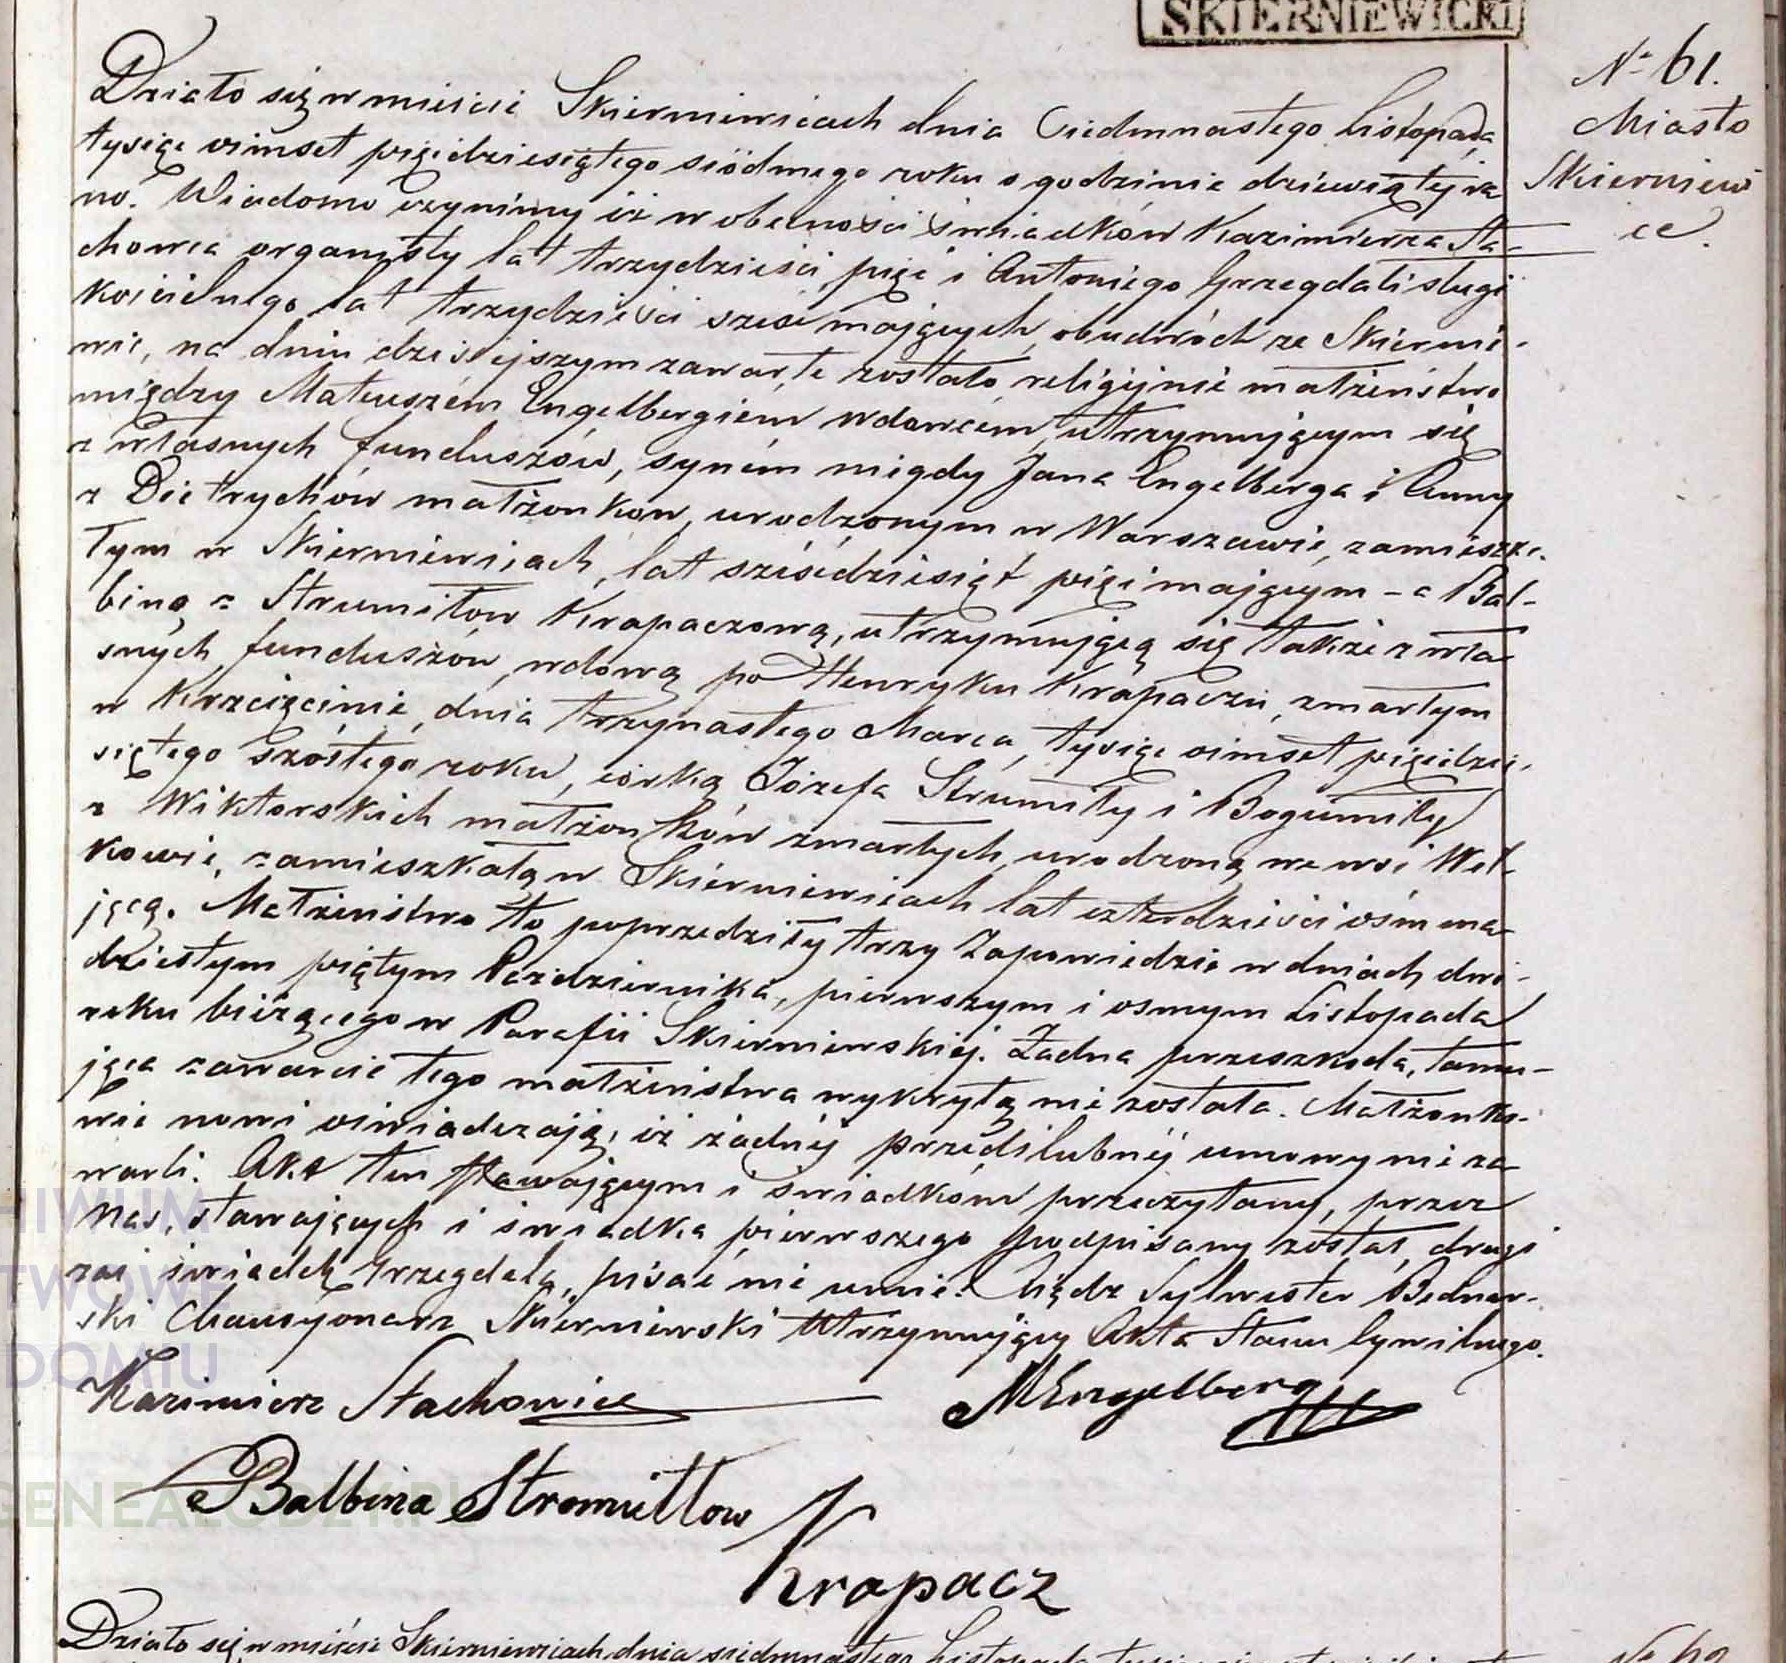 SKIERNIEWICKI
No 61.
Miasto
Skierniew
ice.
Działo się w mieście Skierniewicach dnia Siedmnastego Listopada
tysiąc ośmset pięćdziesiątego siódmego roku o godzinie dziewiątej ra
no. Wiadomo czynimy iż w obecności świadków Kazimierza Sta-
chowca organisty lat trzydzieści pięć i Antoniego Grzegdali sługi
kościelnego lat trzydzieści sześć mających, obudwóch ze Skiernie-
wic, na dniu dzisiejszym zawarte zostało religijnie małżeństwo
między Mateuszem Engelbergiem wdowcem, utrzymującym się
z własnych funduszów, synem niegdy Jana Engelberga i Anny
z Dietrychów małżonków, urodzonym w Warszawie, zamieszka-
łym w Skierniewicach, lat sześćdziesiąt pięć mającym – a Bal-
biną z Strumiłłow Krapaczową, utrzymującą się także z wła
snych funduszów, wdową po Henryku Krapaczu, zmarłym
w Krzcięcinie, dnia trzynastego Marca, tysiąc ośmset pięćdzie-
siątego szóstego roku, córką Józefa Strumiłły i Bogumiły
z Wiktorskich małżonków zmarłych, urodzoną we wsi Wol-
kowie, zamieszkałą w Skierniewicach lat czterdzieści ośm ma-
jącą. Małżeństwo to poprzedziły trzy Zapowiedzie w dniach dwu-
dziestym piątym Października, pierwszym i osmym Listopada
roku bieżącego w Parafii Skierniewskiej. Żadna przeszkoda, tamu-
jąca zawarcie tego małżeństwa wykrytą nie została. Małżonko-
wie nowi oświadczają, iż żadnej przedślubnej umowy nie za
warli. Akt ten stawającym i świadkom przeczytany, przez
Nas, stawających i świadka pierwszego podpisany został, drugi
zaś świadek Grzegdala, pisać nie umie. Ksiądz Sylwester Bednar-
ski Mansyonarz Skierniewski Utrzymujący Akta Stanu Cywilnego.
Kazimierz Stachowicz
MEngelberg
Balbina Stromiłłow
Krapacz
HIWUM
TWOWE
DOMIU
GENEALODZY.PL
Działo się w mieście Skierniewicach dnia siedmnastego Listopada
No 62